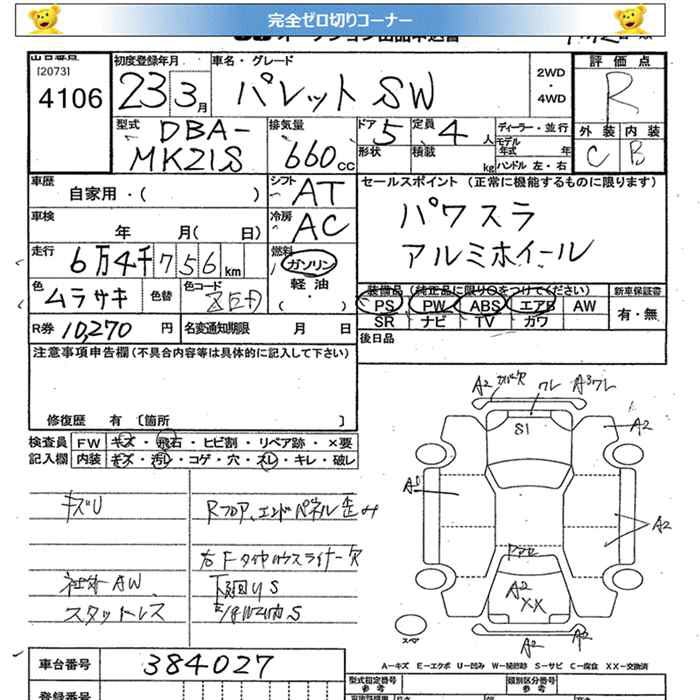 完全ゼロ切りコーナー
[2073]
4106
初度登録年月 23 3月
車名・グレード パレット SW
2WD
・
4WD
評価点
R
外装 内装
C B
型式 DBA-
MK21S
排気量 660cc
ドア 5 定員 4人
形状 積載 kg
ディーラー・並行
モデル年式 年
ハンドル 左・右
車歴 自家用・( )
シフト AT
セールスポイント (正常に機能するものに限ります)
パワスラ
アルミホイール
車検 年 月( 日)
冷房 AC
走行 6万4千756km
燃料 ガソリン
軽油
・
( )
色 ムラサキ 色替 色コード
装備品 (純正品に限り○をつけてください) 新車保証書
PS PW ABS エアB AW
SR ナビ TV カワ
有・無
R券 10,270円 名変通知期限 月 日
後日品
注意事項申告欄(不具合内容等は具体的に記入して下さい)
修復歴 有 [箇所 ]
検査員 FW キズ・飛石・ヒビ割・リペア跡・×要
記入欄 内装 キズ・汚レ・コゲ・穴・スレ・キレ・破レ
キズU
Rフロア、エンドパネル歪み
社外AW
スタットレス
A2 カバー欠 ワレ A3ワレ
S1
A2
A1
A2
A2
XX
スペア
A2 A2
A-キズ E-エクボ U-凹み W-補修跡 S-サビ C-腐食 XX-交換済
車台番号 384027
登録番号
型式指定番号
参考
類別区分番号
参考